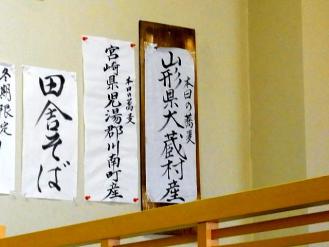 本日の蕎麦
山形県大蔵村産
本日の蕎麦
宮崎県児湯郡川南町産
田舎そば
冬期限定